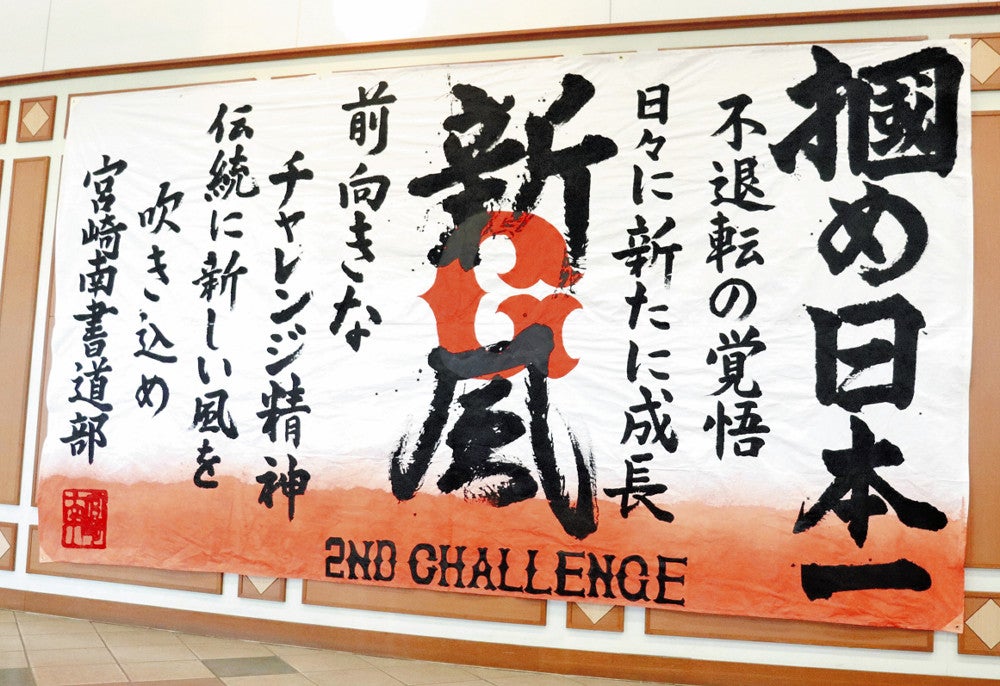 掴め日本一
不退転の覚悟
日々に新たに成長
新風
G
前向きな
チャレンジ精神
伝統に新しい風を
吹き込め
宮崎南書道部
2ND CHALLENGE